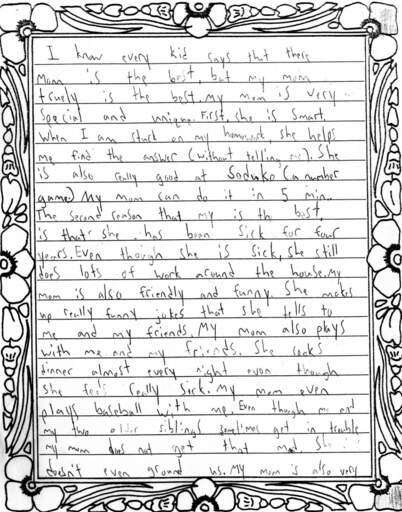 I know every kid says that there
Mom is the best, but my mom
truely is the best. My mom is very
special and unique. First, she is smart.
When I am stuck on my homework, she helps
me find the answer (without telling me). She
is also really good at Soduko (a number
game) My mom can do it in 5 min.
The second reason that my is th best,
is that she has been sick for four
years. Even though she is sick, she still
does lots of work around the house. My
mom is also friendly and funny. She makes
up really funny jokes that she tells to
me and my friends. My mom also plays
with me and my friends. She cooks
dinner almost every night even though
she feels really sick. My mom even
plays baseball with me. Even though me and
my two older siblings sometimes get in trouble
my mom does not get that mad. She
doesn't even ground us. My mom is also very